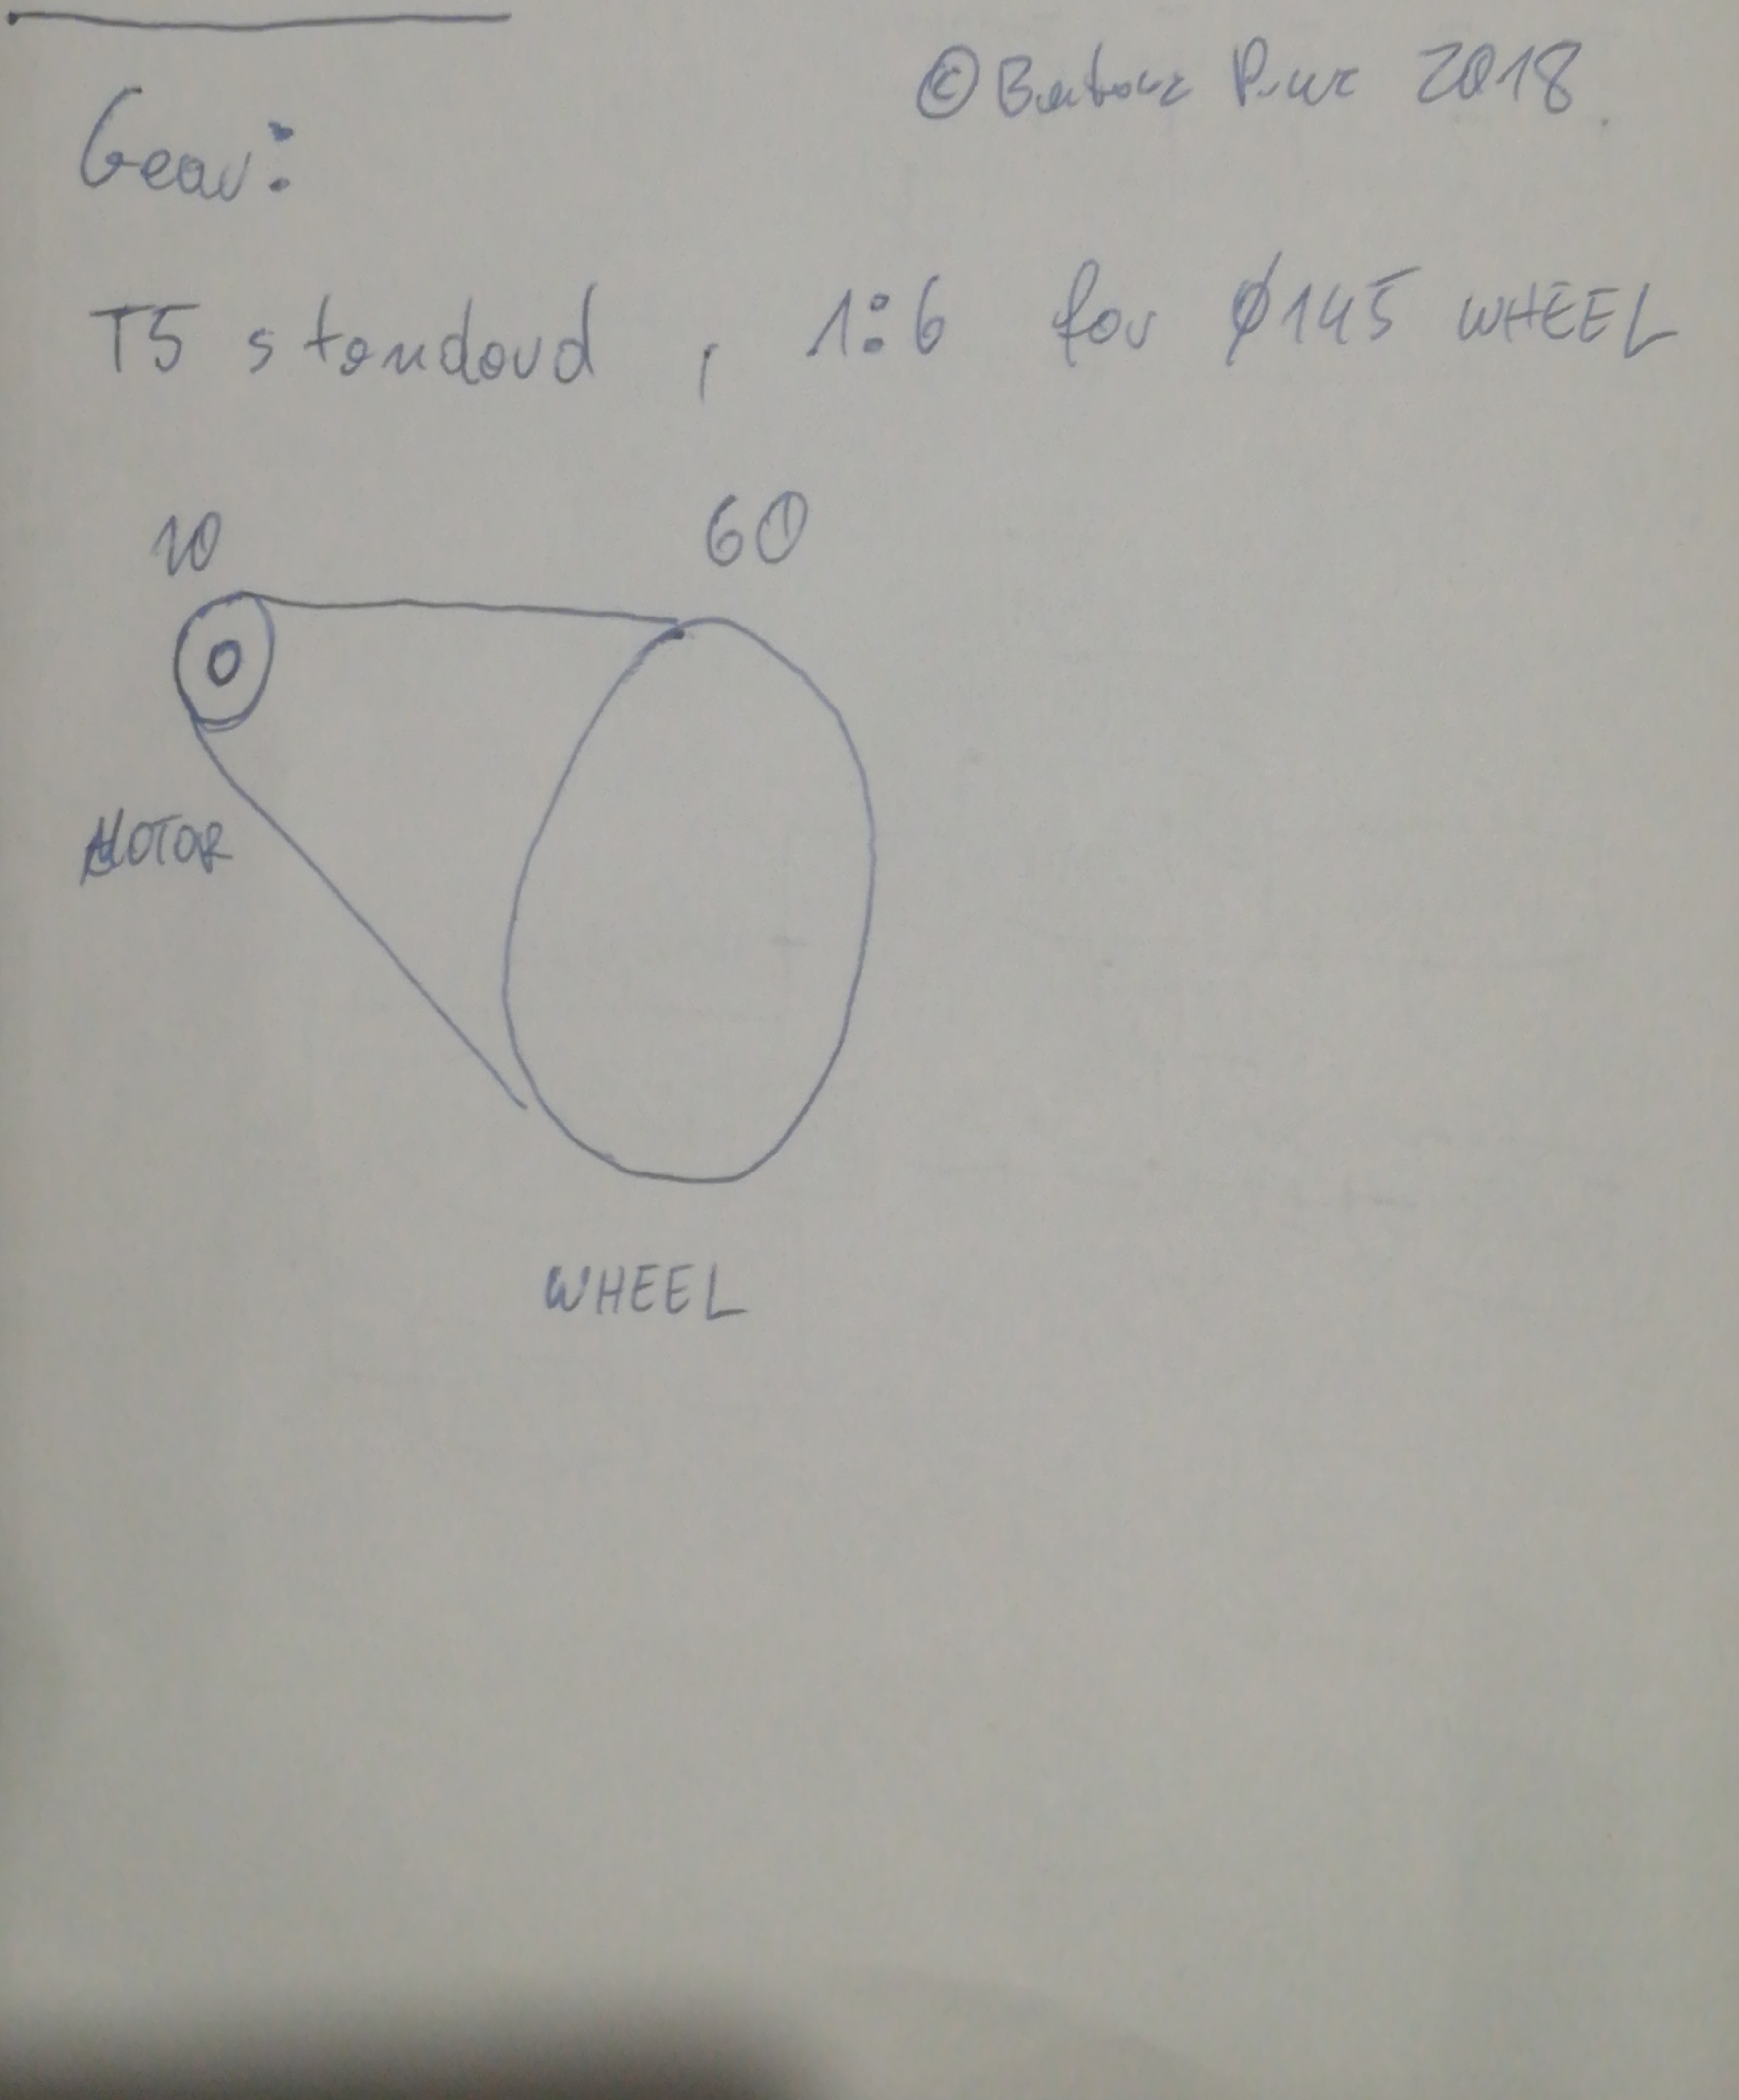 © 2018
Gear:
T5 standard , 1:6 for ø145 WHEEL
10 60
MOTOR
WHEEL